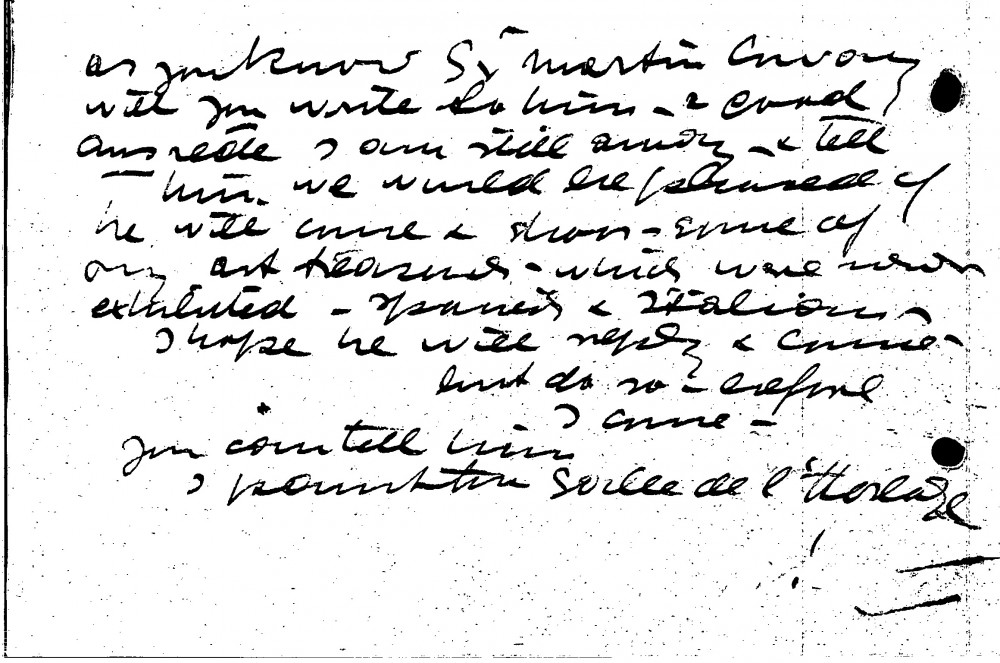 as you know Sr Martin Conway
will you write to him - & 
 I am still away - & tell
him we would be pleased if
he will come & show - some of
our art treasures - which were never
exhibited - Spanish & Italian -
I hope he will reply & come -
but do so - before
I come -
you can tell him
I Salle de l'Horloge